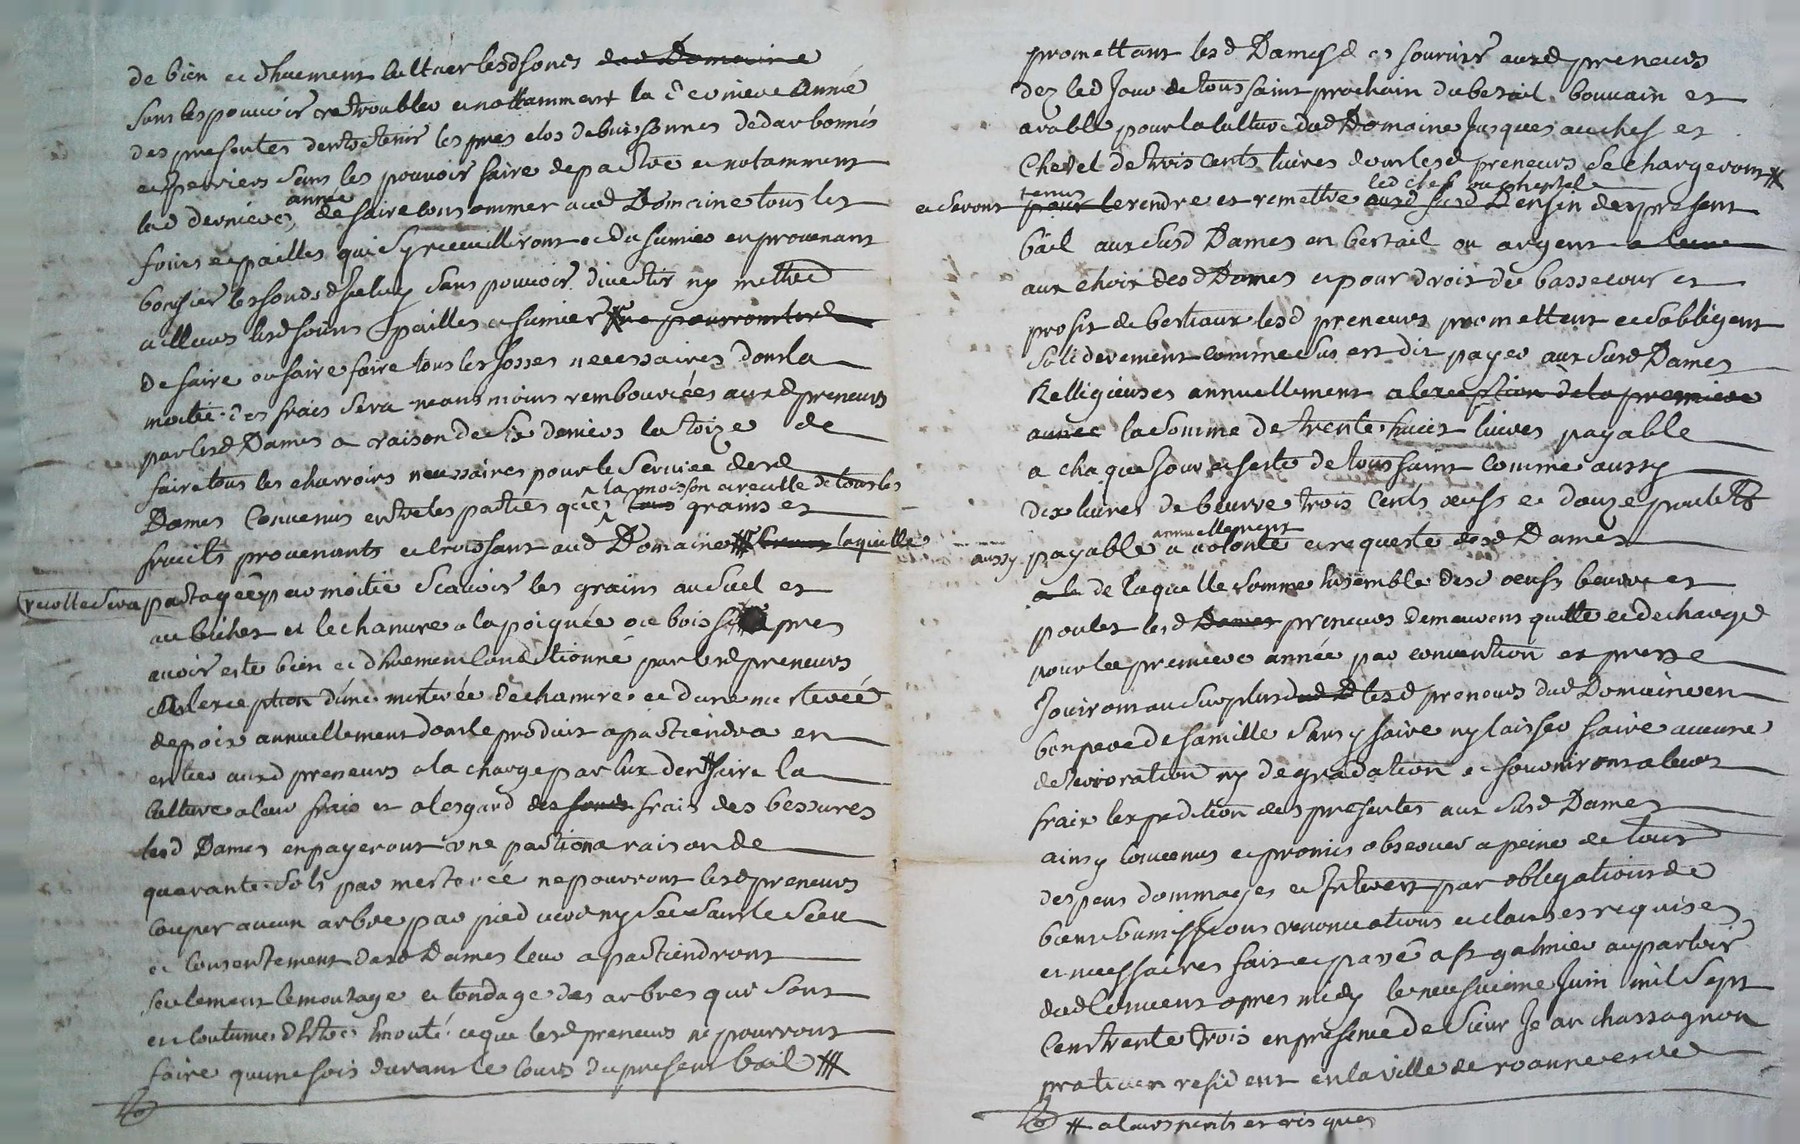 de bien et dhuement cultiver lesd fonds dud Domaine
sans les pouvoir detroubler et nottamment la derniere année
des presentes dentretenir les prés clos de buissonnes de darbonnés
et perriers sans les pouvoir faire depaitre et notamment
lad derniere année, de faire consommer aud Domaine tous les
foins et pailles qui sy receuilliront et du fumier en provenant
bonifier les fonds diceluy sans pouvoir divertir ny mettre
ailleurs lesd foins pailles et fumier ne pourront lesd
de faire ou faire faire tous les fosses necessaires dont la
moitié des frais sera neantmoins rembourcées auxd preneurs
par lesd Dames a raison de six deniers la toize de
faire tous les charroirs necessaires pour le service desd
Dames Convenus entre les parties que la moisson et recolte de tous les grains et
fruits provenants et croissant aud Domaine laquelle
recolte sera partagée par moitié Scavoir les grains au Suel et
au bichet et le chanvre a la poignée de bois apres
avoir esté bien et dhuement Conditionné par lesd preneurs
a lexception dune mesterée de chanvre et dune mesterée
de poix annuellement dont le produit apartiendra en
entier auxd preneurs a la charge par eux den faire la
culture a leur frais et a lesgard des fonds frais des bessures
lesd Dames en payeront une partion a raison de
quarante sols par mesterée ne pourront lesd preneurs
Couper aucun arbre par pied vert ny sec sans le sceu
et consentement desd Dames leur apartiendront
seulement lemontage et tondage des arbres qui sont
en coutume dEstre Emonté ce que lesd preneurs ne pourront
faire qu une fois durant le Cours du present bail
promettant lesd Dames de fournir auxd preneurs
dez led Jour de tous saint prochain du betail bouvain et
arable pour la culture dud Domaine Jusques au chef et
Cheptel de trois cents livres dont lesd preneurs se chargeront
et seront tenus pour le rendre et remettre led chef ou cheptel auxd fin du present
bail aux susd Dames en bertail ou argent a leur
aux choix desd Dames et pour droit de bassecour et
profit de bestiaux lesd preneurs promettent et sobligent
solidairement comme sus est dit payer aux susd Dames
Relligieuses annuellement a lexception de la premiere
année la somme de trente huict livres payable
a chaque Jour et feste de tous saint comme aussy
dix livres de beurre trois Cents oeufs et douze poulets
aussy payable annuellement a volonté et requeste desd Dames
a la de laquelle somme Ensemble desd oeufs beurre et
poulet lesd Dames preneurs demeurent quitte et decharge
pour la premiere année par convention expresse
Jouiront au surplus lesd preneurs dud Domaine en
bon pere de famille sans y faire ny laisser faire aucune
deterioration ny degradation et fourniront a leurs
fraix lexpedition des presentes aux susd Dames
ainsy Convenus et promis observer a peine de tous
despens dommages et Interest par obligations de
biens soumissions renonciations et clauses requises
et necessaires fait et passé a st galmier au parloir
dud Couvent apres midy le neufvieme Juin mil Sept
Cent trente trois en présence de Sieur Jean chassagnon
praticien resident en la ville de roanne et de
a leurs perils et risques